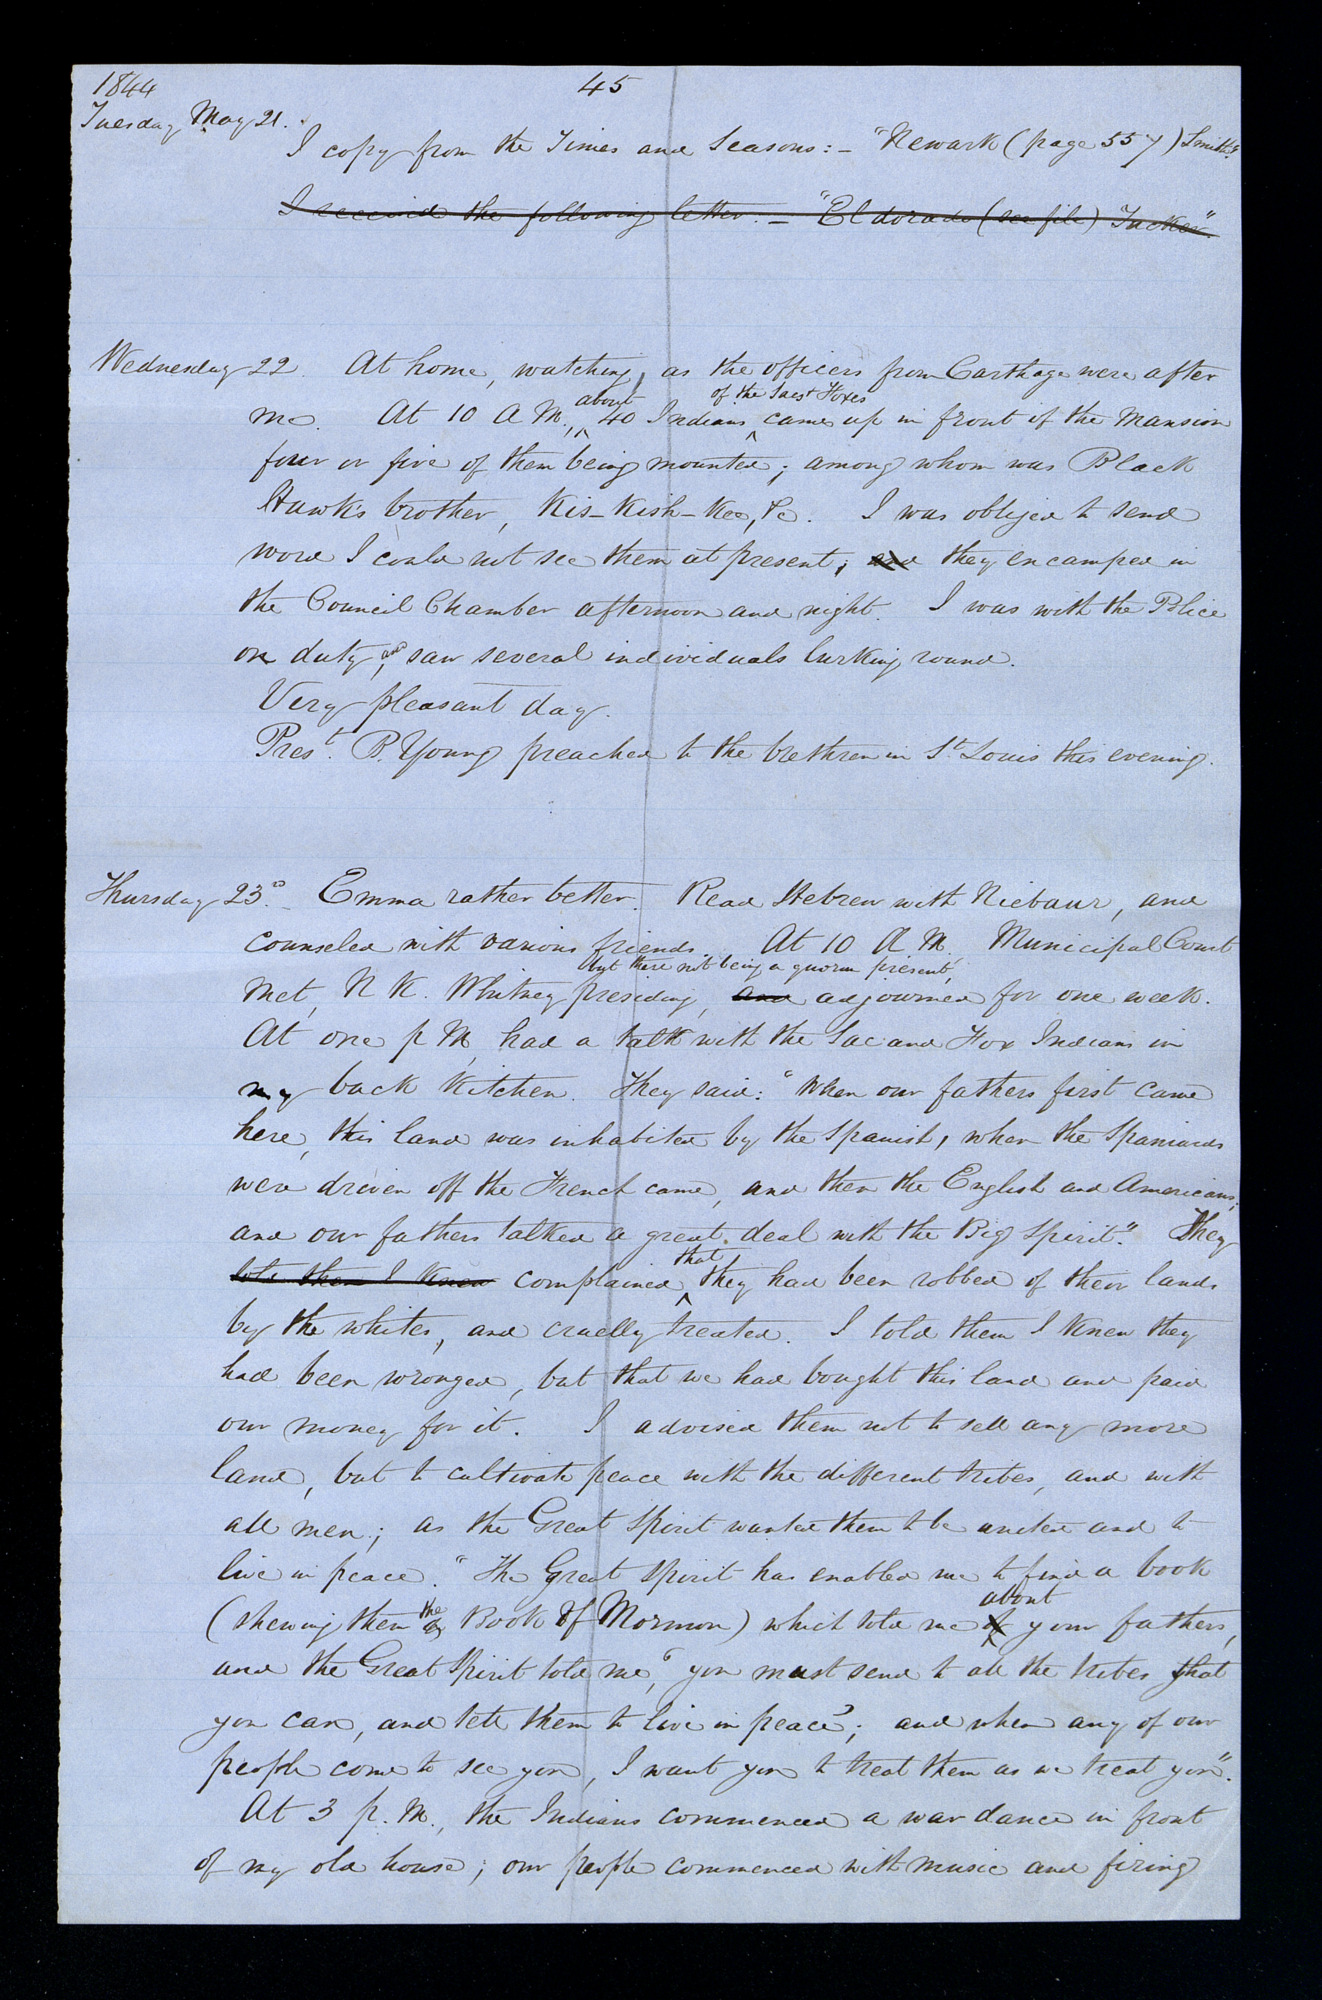 1844
45
Tuesday May 21.
I copy from the Times and Seasons:— "Newark (page 557) Smith".
I received the following letter.— "El dorado (see file) Tucker".
Wednesday 22. At home, watching, as the officers from Carthage were after
of the Sacs & Foxes
me. At 10 A M., about 40 Indians came up in front of the Mansion
four or five of them being mounted; among whom was Black
Hawk's brother, Kis-Kish-Kee, &c. I was obliged to send
word I could not see them at present; and they encamped in
the Council Chamber afternoon and night. I was with the Police
on duty, and saw several individuals lurking round.
Very pleasant day.
Prest. B. Young preached to the brethren in St. Louis this evening.
Thursday 23d.— Emma rather better. Read Hebrew with Niebaur, and
counseled with various friends. At 10 A M Municipal Court
but there not being a quorum present,
met, N K. Whitney presiding, and adjourned for one week.
At one p M, had a talk with the Sac and Fox Indians in
my back Kitchen. They said: "When our fathers first came
here, this land was inhabited by the Spanish, when the Spaniards
were driven off the French came, and then the English and Americans;
and our fathers talked a great deal with the Big Spirit." They
told them I knew complained that they had been robbed of their lands
by the whites, and cruelly treated. I told them I knew they
had been wronged, but that we had bought this land and paid
our money for it. I advised them not to sell any more
land, but to cultivate peace with the different tribes, and with
all men; as the Great Spirit wanted them to be united and to
live in peace. "The Great Spirit has enabled me to find a book
(shewing them the Book of Mormon) which told me of about your fathers,
and the Great Spirit told me, 'you must send to all the tribes that
you can, and tell them to live in peace'; and when any of our
people come to see you, I want you to treat them as we treat you".
At 3 p. M., the Indians commenced a war dance in front
of my old house; our people commenced with music and firing